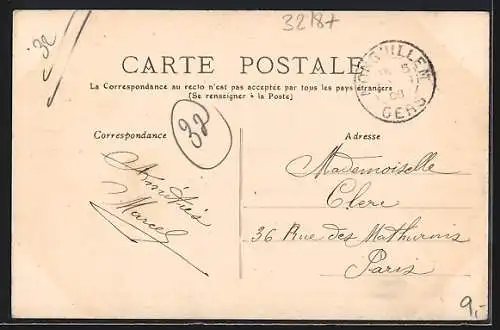 32187
32
CARTE POSTALE
La Correspondance au recto n'est pas acceptée par tous les pays étrangers
(Se renseigner à la Poste)
MONGUILLEM
GERS
32
Correspondance
Adresse
Amitiés
Marcel
Mademoiselle
Clere
36 Rue des Mathurins
Paris
9,-